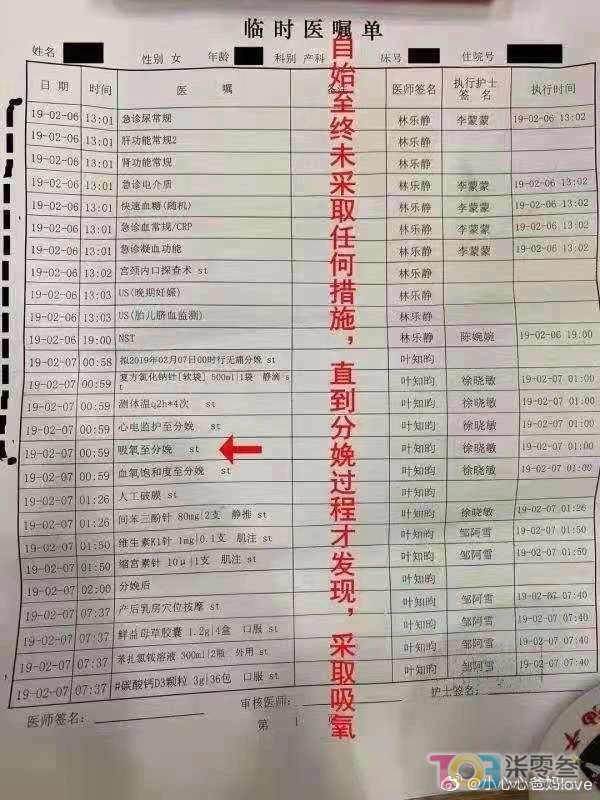 临时医嘱单
姓名 性别 女 年龄 科别 产科 床号 住院号
日期 时间 医嘱 医师签名 执行护士签名 执行时间
19-02-06 13:01 急诊尿常规 林乐静 李蒙蒙 19-02-06 13:02
19-02-06 13:01 肝功能常规2 林乐静
19-02-06 13:01 肾功能常规 林乐静
19-02-06 13:01 急诊电介质 林乐静 李蒙蒙 19-02-06 13:02
19-02-06 13:01 快速血糖(随机) 林乐静 李蒙蒙 19-02-06 13:02
19-02-06 13:01 急诊血常规/CRP 林乐静 李蒙蒙 19-02-06 13:02
19-02-06 13:01 急诊凝血功能 林乐静 李蒙蒙 19-02-06 13:02
19-02-06 13:02 宫颈内口探查术 st 林乐静
19-02-06 13:03 US(晚期妊娠) 林乐静
19-02-06 13:03 US(胎儿脐血监测) 林乐静
19-02-06 19:00 NST 林乐静 陈婉婉 19-02-06 19:00
19-02-07 00:58 拟2019年02月07日00时行无痛分娩 st 叶知昀
19-02-07 00:59 复方氯化钠针[软袋] 500ml|1袋 静滴 st 叶知昀 徐晓敏 19-02-07 01:00
19-02-07 00:59 测体温q2h*4次 st 叶知昀 徐晓敏 19-02-07 01:00
19-02-07 00:59 心电监护至分娩 st 叶知昀 徐晓敏 19-02-07 01:00
19-02-07 00:59 吸氧至分娩 st 叶知昀 徐晓敏 19-02-07 01:00
19-02-07 00:59 血氧饱和度至分娩 st 叶知昀 徐晓敏 19-02-07 01:00
19-02-07 01:26 人工破膜 st 叶知昀
19-02-07 01:26 间苯三酚针 80mg|2支 静推 st 叶知昀 徐晓敏 19-02-07 01:26
19-02-07 01:50 维生素K1针 1mg|0.1支 肌注 st 叶知昀 邹阿雪 19-02-07 01:50
19-02-07 01:50 缩宫素针 10μ|1支 肌注 st 叶知昀 邹阿雪 19-02-07 01:50
19-02-07 02:00 分娩后 叶知昀
19-02-07 07:37 产后乳房穴位按摩 st 叶知昀 邹阿雪 19-02-07 07:40
19-02-07 07:37 鲜益母草胶囊 1.2g|4盒 口服 st 叶知昀 邹阿雪 19-02-07 07:40
19-02-07 07:37 苯扎氯铵溶液 300ml|2瓶 外用 st 叶知昀 邹阿雪 19-02-07 07:40
19-02-07 07:37 #碳酸钙D3颗粒 3g|36包 口服 st 叶知昀 邹阿雪 19-02-07 07:40
医师签名: 审核医师: 护士签名:
第 1
自始至终未采取任何措施，直到分娩过程才发现，采取吸氧
703 柒零叁
@小心心爸妈love